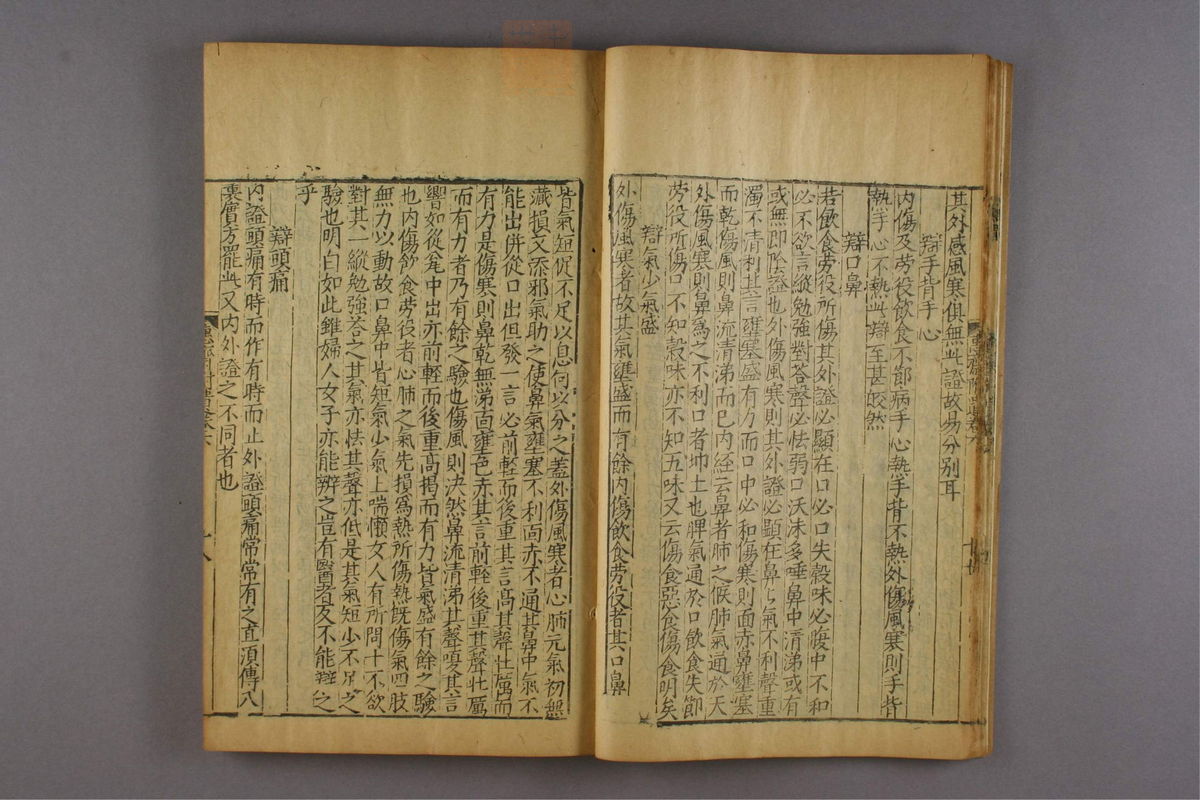 其外感風寒俱無此證故易分別耳
辯手背手心
內傷及勞役飲食不節病手心熱手背不熱外傷風寒則手背
熱手心不熱此辯至甚皎然
辯口鼻
若飲食勞役所傷其外證必顯在口必口失穀味必腹中不和
必不欲言縱勉強對荅聲必怯弱口沃沫多唾鼻中清涕或有
或無即陰證也外傷風寒則其外證必顯在鼻鼻氣不利聲重
濁不清利其言壅塞盛有力而口中必和傷寒則面赤鼻壅塞
而乾傷風則鼻流清涕而已內經云鼻者肺之候肺氣通於天
外傷風寒則鼻為之不利口者坤土也脾氣通於口飲食失節
勞役所傷口不知穀味亦不知五味又云傷食惡食傷食明矣
辯氣少氣盛
外傷風寒者故其氣壅盛而有餘內傷飲食勞役者其口鼻
皆氣短促不足以息何以分之蓋外傷風寒者心肺元氣初無
減損又添邪氣助之使鼻氣壅塞不利面赤不通其鼻中氣不
能出併從口出但發一言必前輕而後重其言高其聲壯厲而
有力是傷寒則鼻乾無涕面壅色赤其言前輕後重其聲壯厲
而有力者乃有餘之驗也傷風則決然鼻流清涕其聲嗄其言
響如從瓮中出亦前輕而後重高揭而有力皆氣盛有餘之驗
也內傷飲食勞役者心肺之氣先損為熱所傷熱既傷氣四肢
無力以動故口鼻中皆短氣少氣上喘懶文人有所問十不欲
對其一縱勉強荅之其氣亦怯其聲亦低是其氣短少不足之
驗也明白如此雖婦人女子亦能辨之豈有醫者反不能辯之
乎
辯頭痛
內證頭痛有時而作有時而止外證頭痛常常有之直須傳入
裏實方罷此又內外證之不同者也